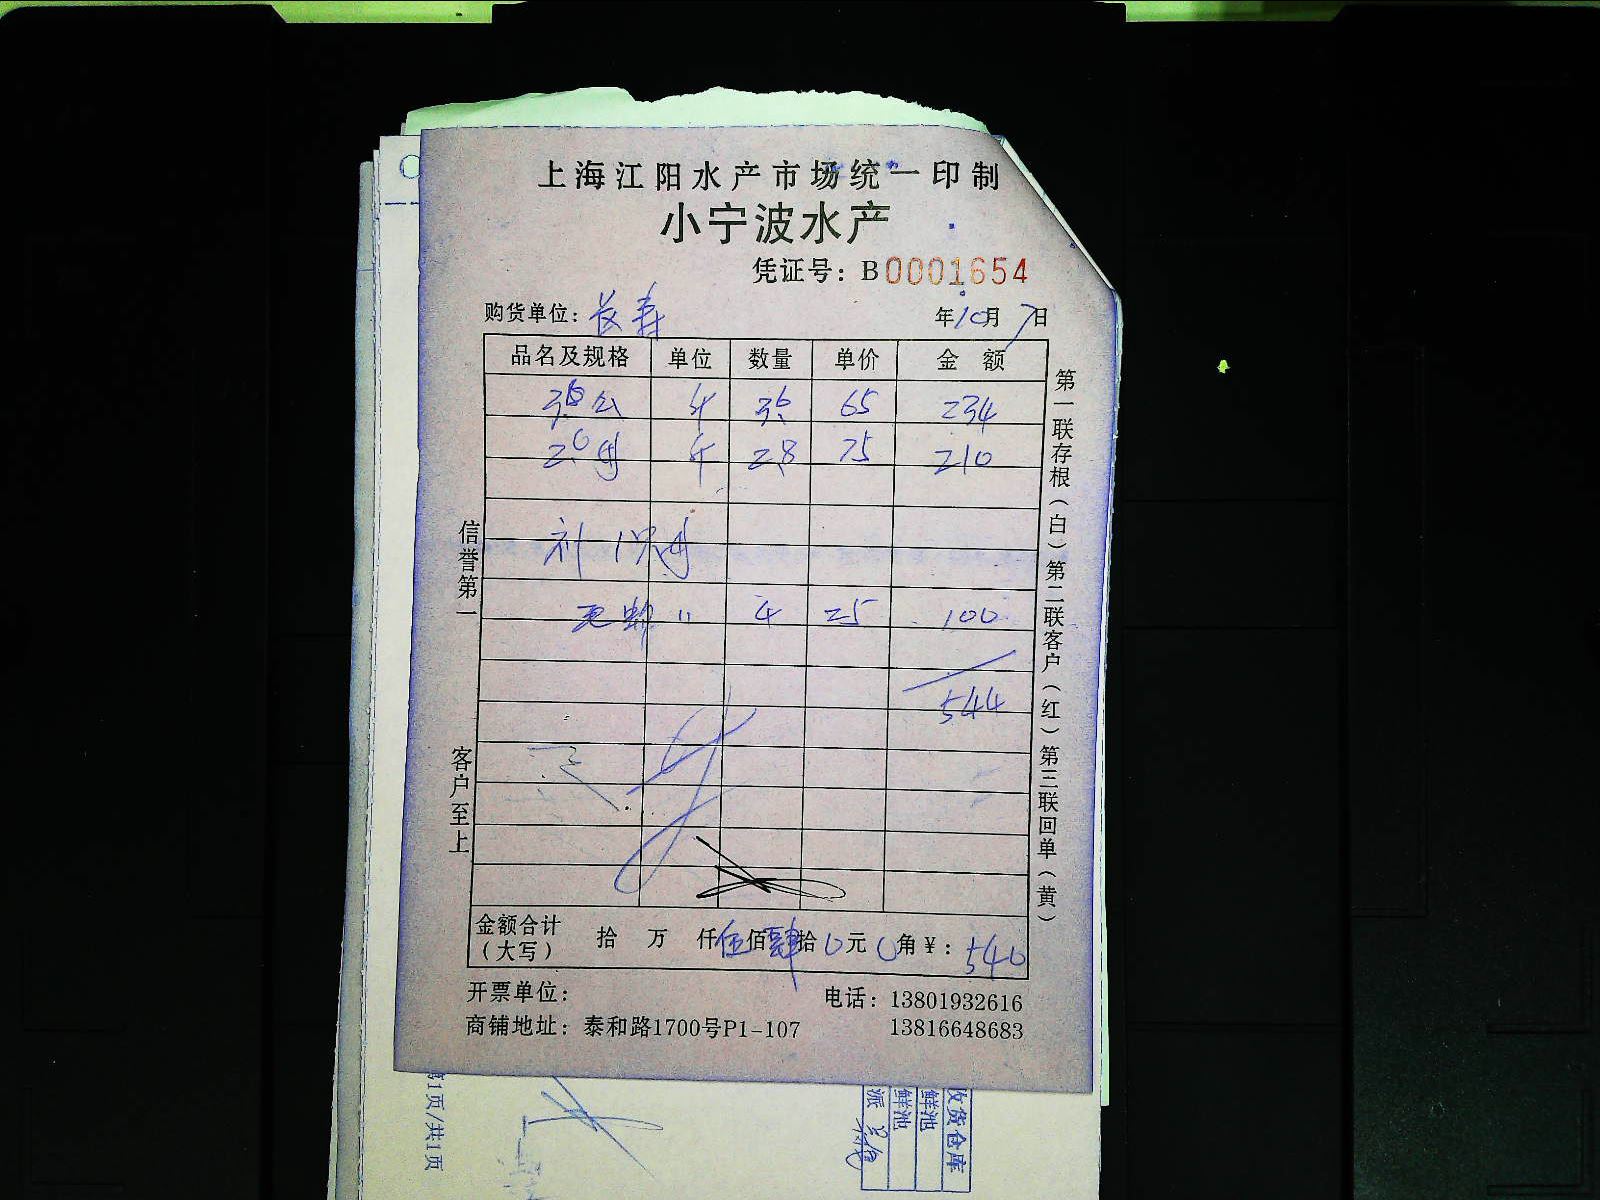 上海江阳水产市场统一印制
小宁波水产
凭证号：B0001654
购货单位：长寿 年10月7日
品名及规格 单位 数量 单价 金额
3.5公 斤 3.6 65 234
2.6母 斤 2.8 75 210
补1只母
" 4 25 100
544
金额合计（大写） 拾 万 仟伍佰肆拾0元0角￥：540
开票单位： 电话：13801932616
商铺地址：泰和路1700号P1-107 13816648683
信誉第一 客户至上
第一联存根（白）第二联客户（红）第三联回单（黄）
第1页/共1页
收货仓库
鲜池
鲜池
派